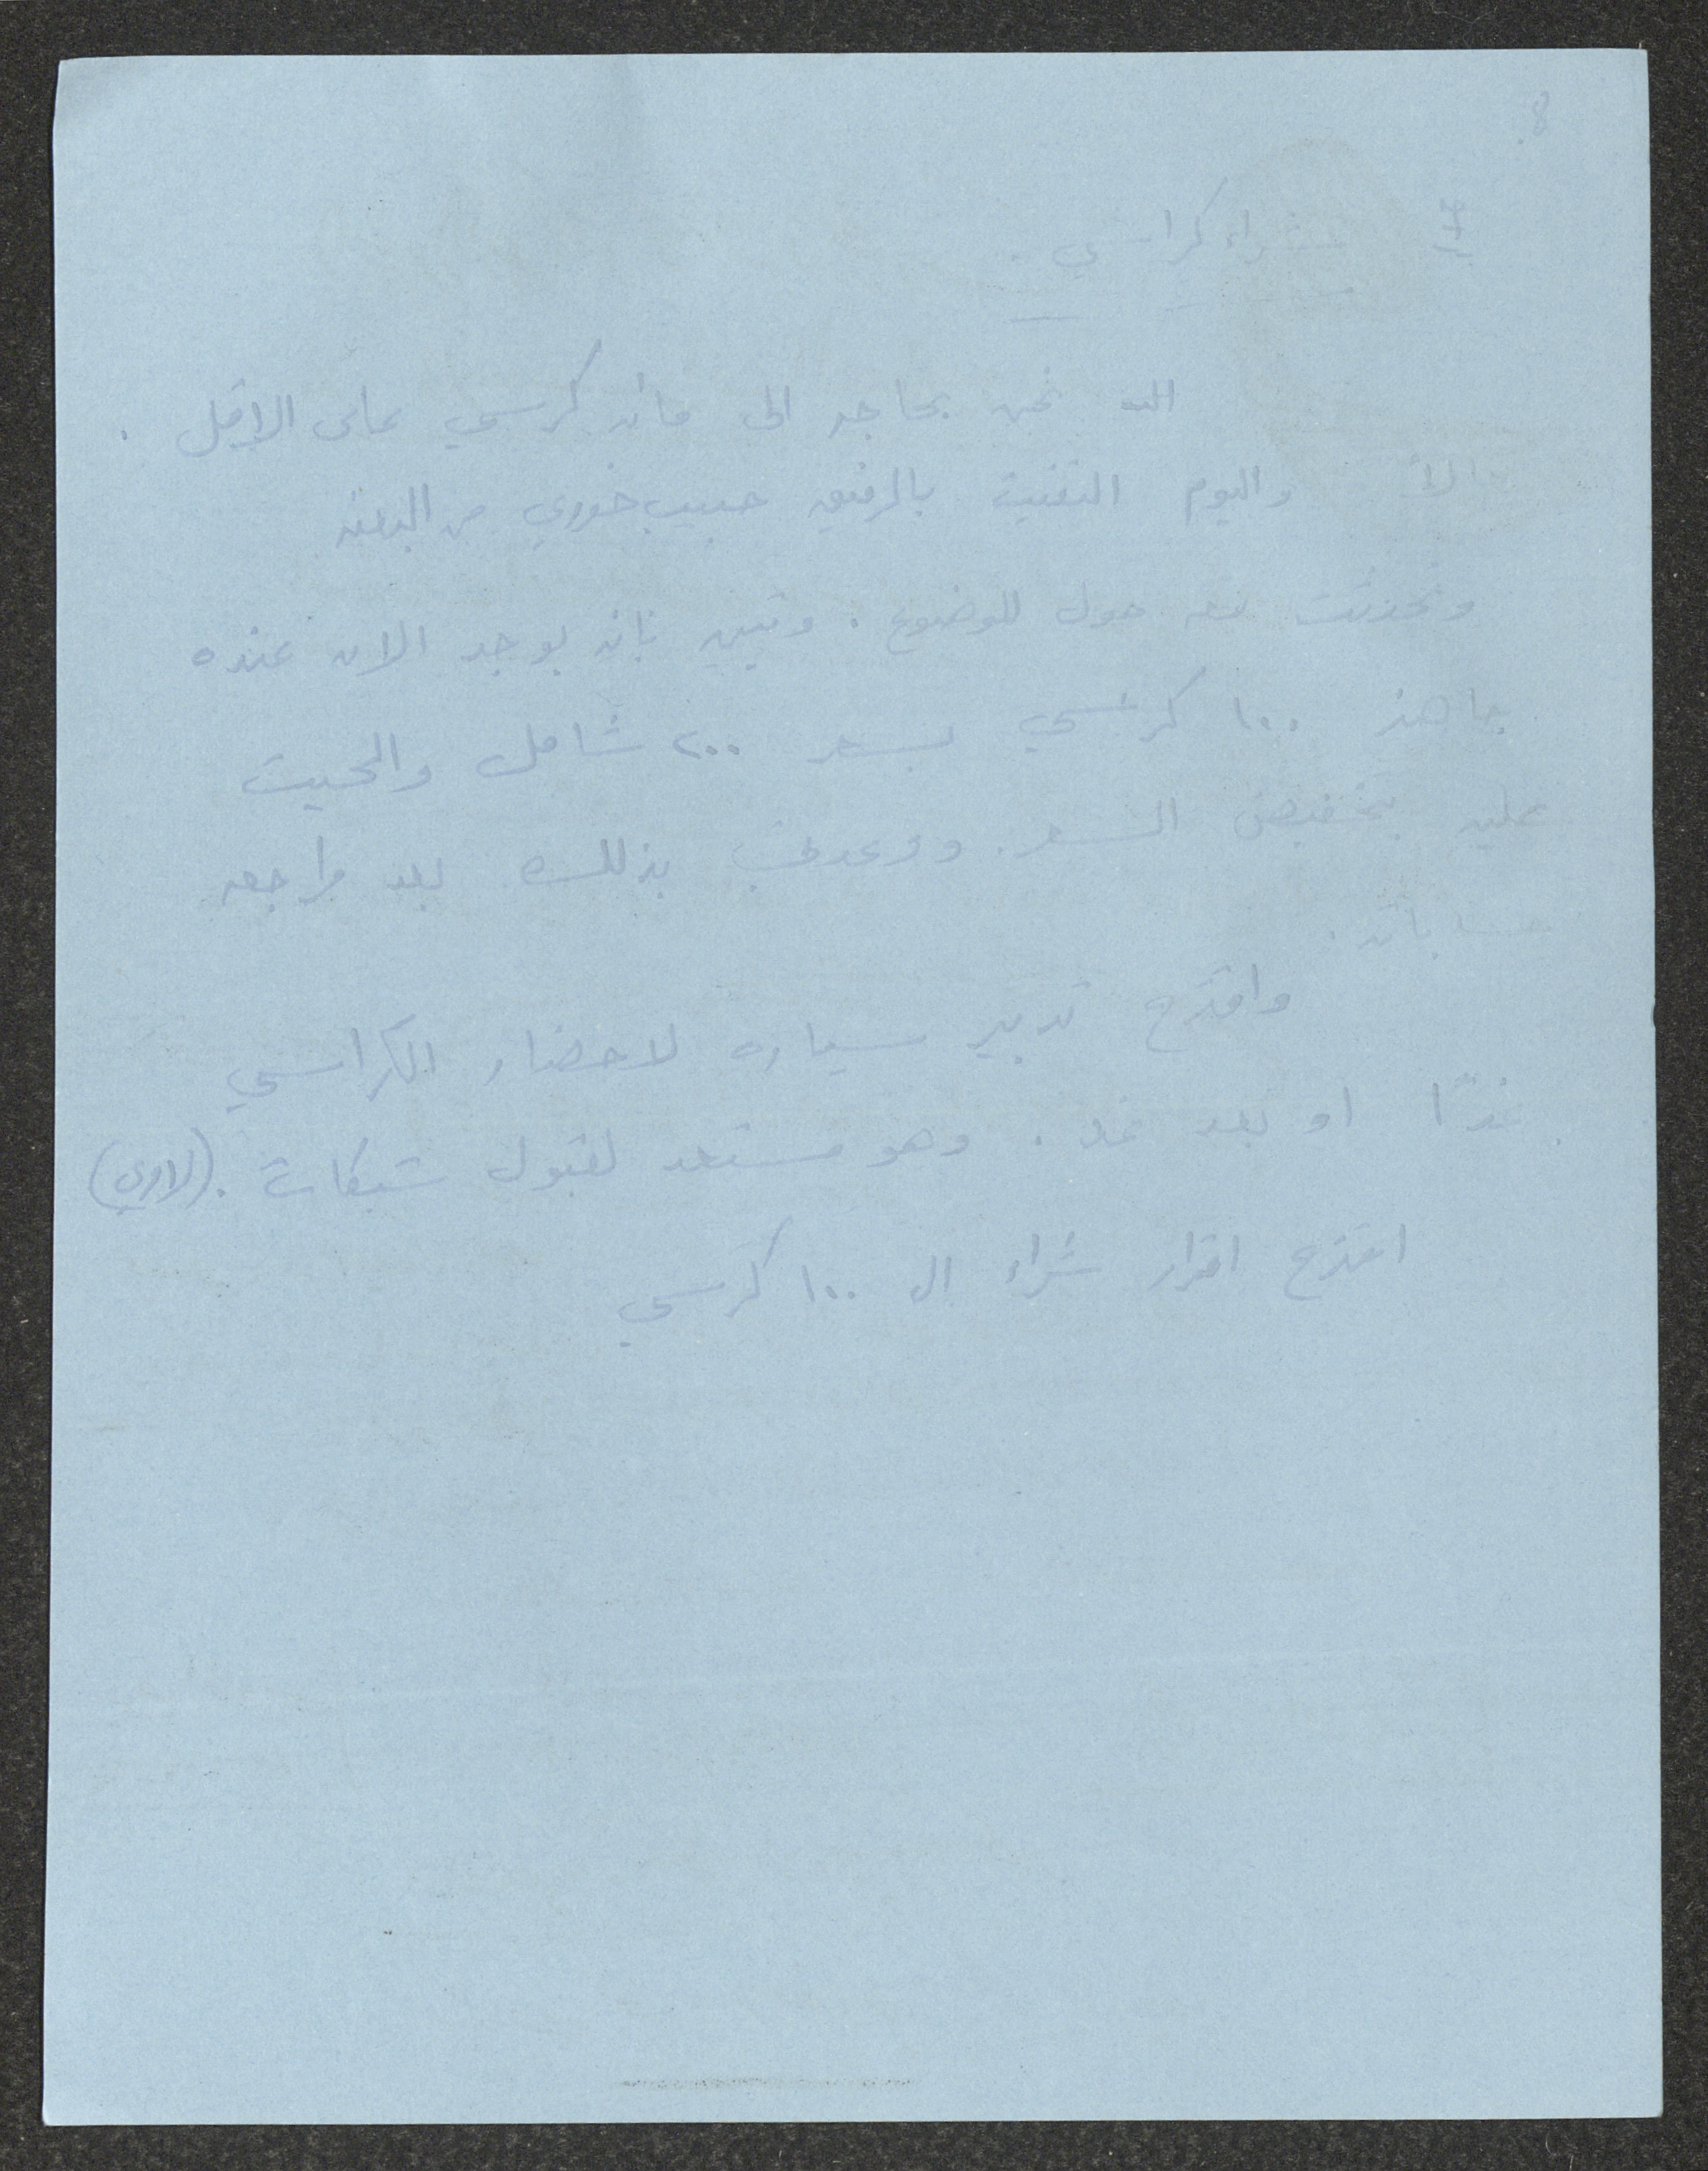 8
شراء كراسي .
نحن بحاجه الى مائه كرسي على الاقل .
واليوم التقيت بالرفيق حبيب خوري من البعنه
وتحدثت معه حول الموضوع . وتبين بانه يوجد الان عنده
جاهز ١٠٠ كرسي بسعر ٢٠٠ شامل والحيت
عليه بتخفيض السعر . ووعدني بذلك بعد مراجعه
حساباته .
واقترح تدبير سياره لاحضار الكراسي
غدًا او بعد غد . وهو مستعد لقبول شيكات .
اقترح اقرار شراء ال ١٠٠ كرسي